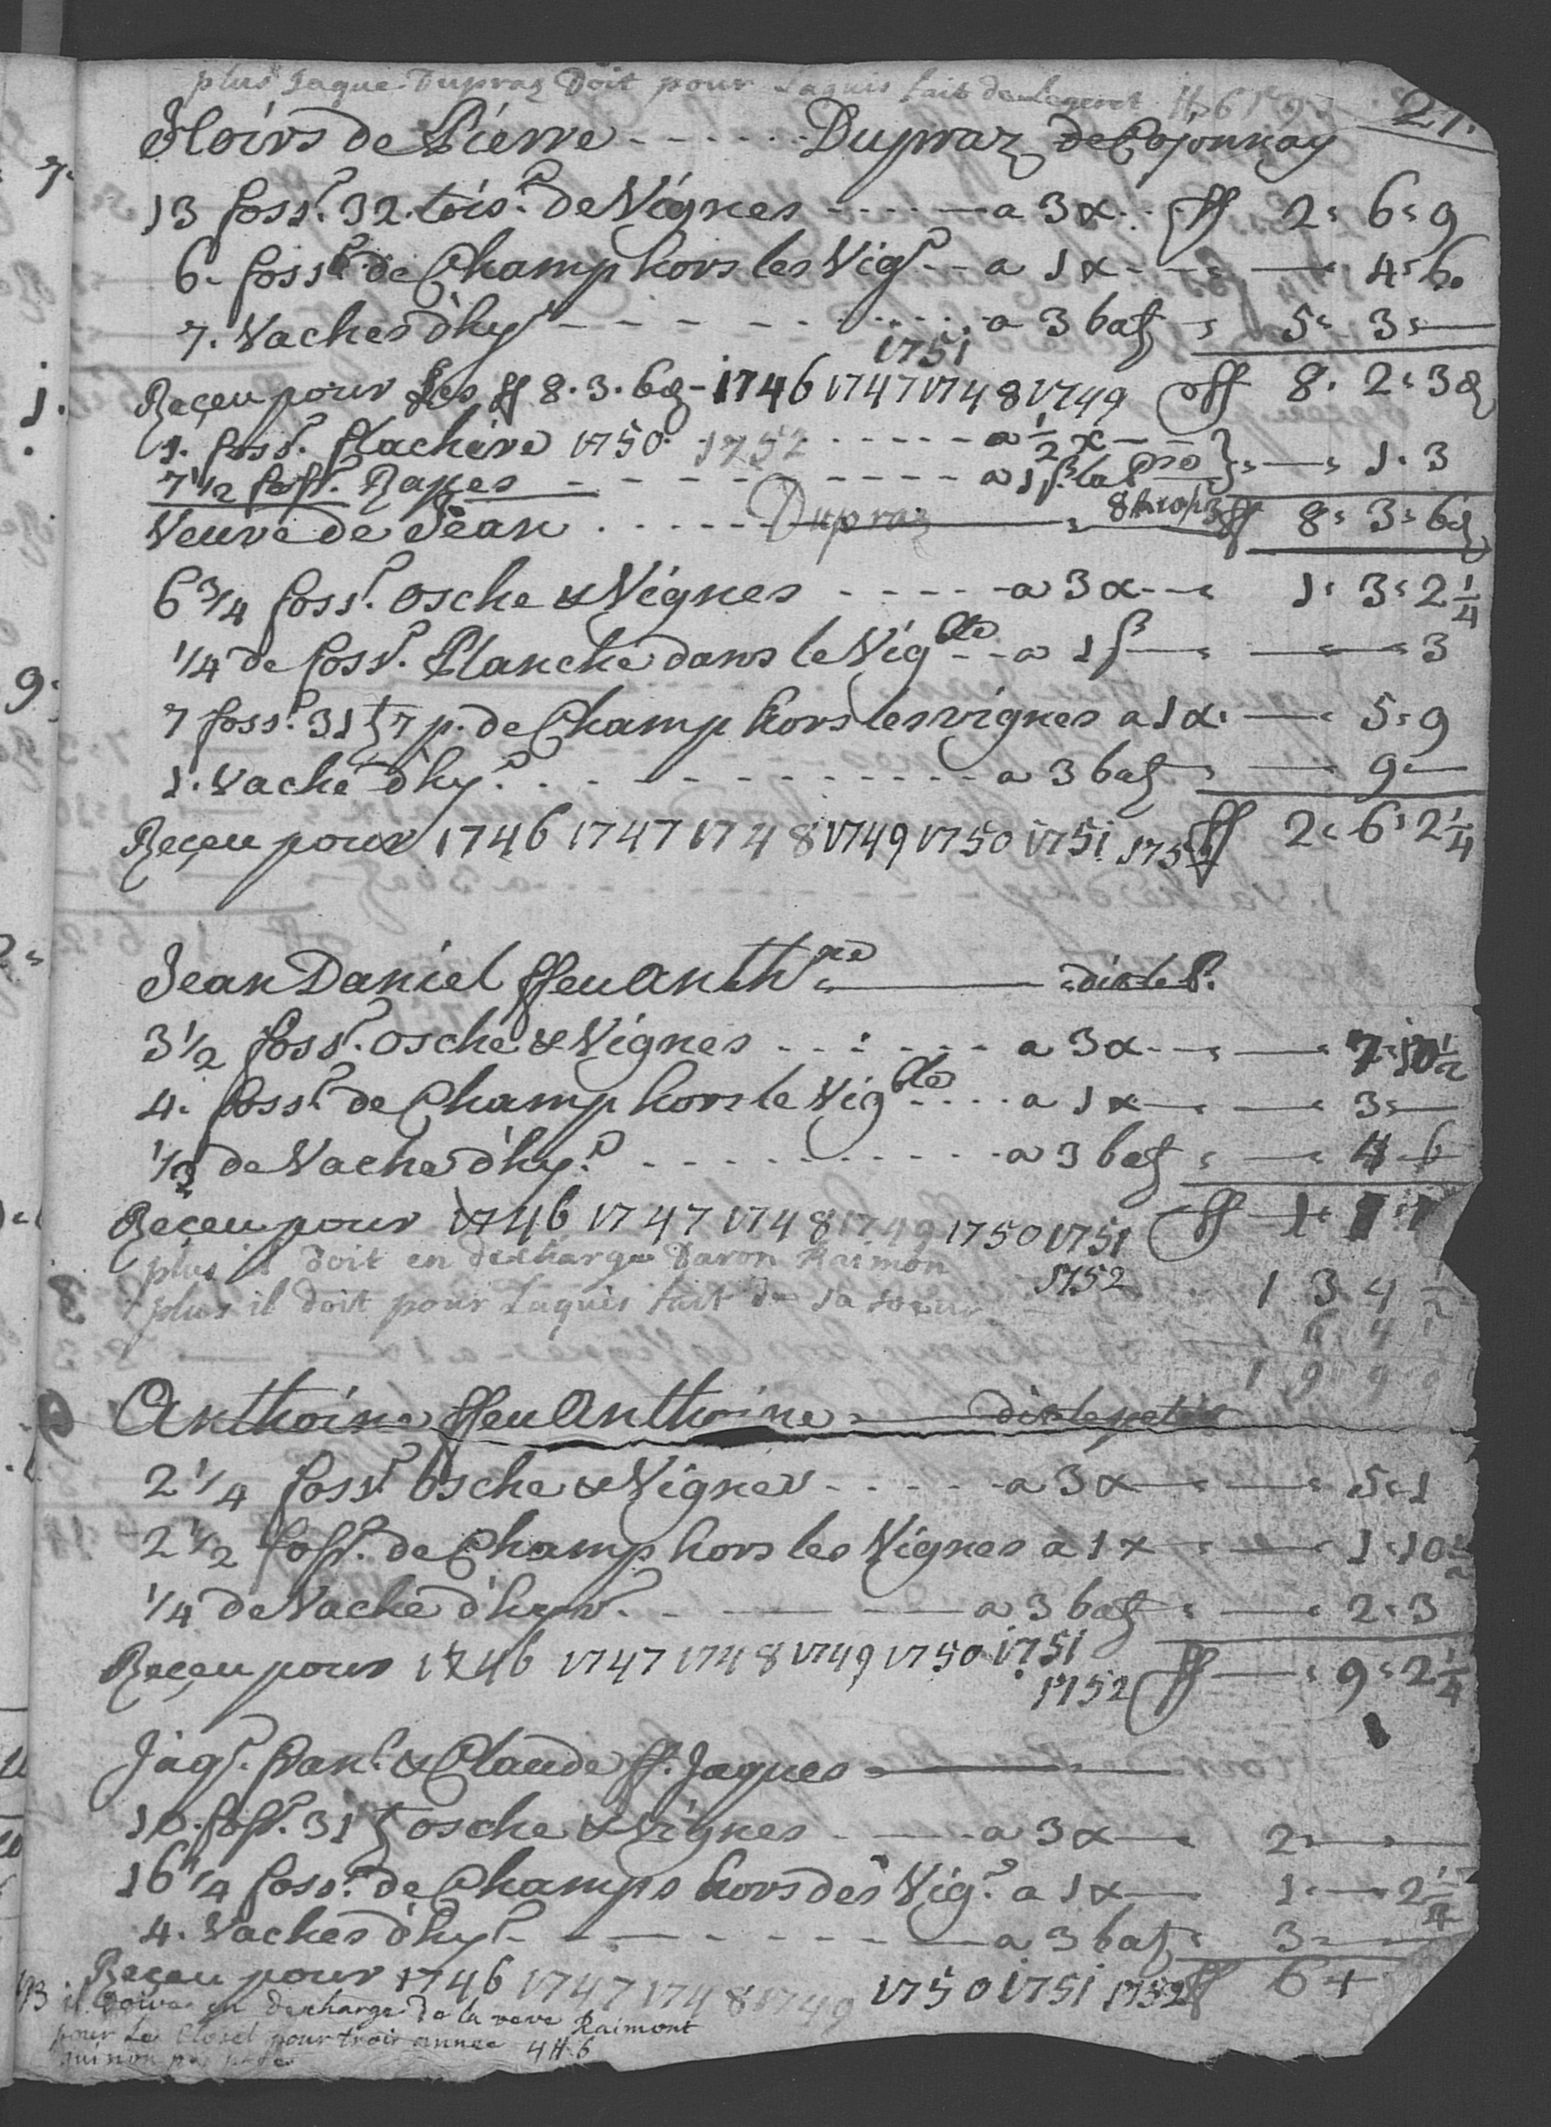 plus Jaque Dupraz Doit pour Laquis fait de Legeret
27.
Hoirs de Pierre - - - - - - Dupraz de Cojonnay
13 foss.r 32. tois.s de Vignes - - - - - a 3 x . . ff 2 : 6 : 9
6 - foss.r de Champ hors les Vig.s - - a 1 x - - : — 4 : 6.
7. Vaches d'hy.r - - - - - - - - - a 3 batz : 5 : 3 : —
1751
Reçeu pour les ff 8 . 3 . 6 d - 1746 1747 1748 1749 ff 8 . 2 : 3 d
1. foss.r flachere 1750 . 1752 - - - - - a 1/2 x - - } : — : 1 . 3
7 1/2 foss.r Rapes - - - - - - - - - a 1 s. la
ff 8 : 3 : 6 d
Veuve de Jean . . . . . . Dupraz
6 3/4 foss.r osche & Vignes - - - - - a 3 x - - : 1 : 3 : 2 1/4
1/4 de foss.r Planche dans le Vig ble - - a 1 s — : — : 3
7 foss.r 31 t 7 p. de Champ hors les vignes a 1 x . — : 5 : 9
1. Vache d'hy.r - - - - - - - - - a 3 batz : — 9 : —
Reçeu pour 1746 1747 1748 1749 1750 1751 ff 2 : 6 : 2 1/4
Jean Daniel ffeu Anth ne : — : dit le P.
3 1/2 foss.r osche & Vignes - - - - - - a 3 x - - : — : 7 : 10 1/2
4. foss.r de Champ hors le Vig ble - - - - a 1 x — : — : 3 : —
1/2 de Vache d'hy.r - - - - - - - - - a 3 batz : — : 4 : 6
Reçeu pour 1746 1747 1748 1749 1750 1751 ff
plus il doit en decharge Daron Raimon
1752
1 3 4 1/2
plus il doit pour Laquis fait de sa soeur
6 4
1 9 9
Anthoine ffeu Anthoine : — dit le petit
2 1/4 foss.r osche & Vignes - - - - - a 3 x — : — : 5 : 1
2 1/2 foss.r de Champ hors les Vignes a 1 x — : — : 1 : 10 1/2
1/4 de Vache d'hyv.r - - — - - — a 3 batz : — : 2 : 3
Reçeu pour 1746 1747 1748 1749 1750 1751
1752 ff — : 9 : 2 1/4
Jaq.s fran.s & Claude ff. Jaques : —
10 . foss.r 31 t osche & Vignes - — - a 3 x — : 2 : — : —
16 1/4 foss.r de Champs hors des Vig.s a 1 x — 1 : — : 2 1/4
4. Vaches d'hy.r - - - - - - - a 3 batz : 3 : — —
Reçeu pour 1746 1747 1748 1749 1750 1751 1752 ff 6 +
il Doive en decharge de la veve Raimont
pour Le Closel pour trois annee 4 ff 6